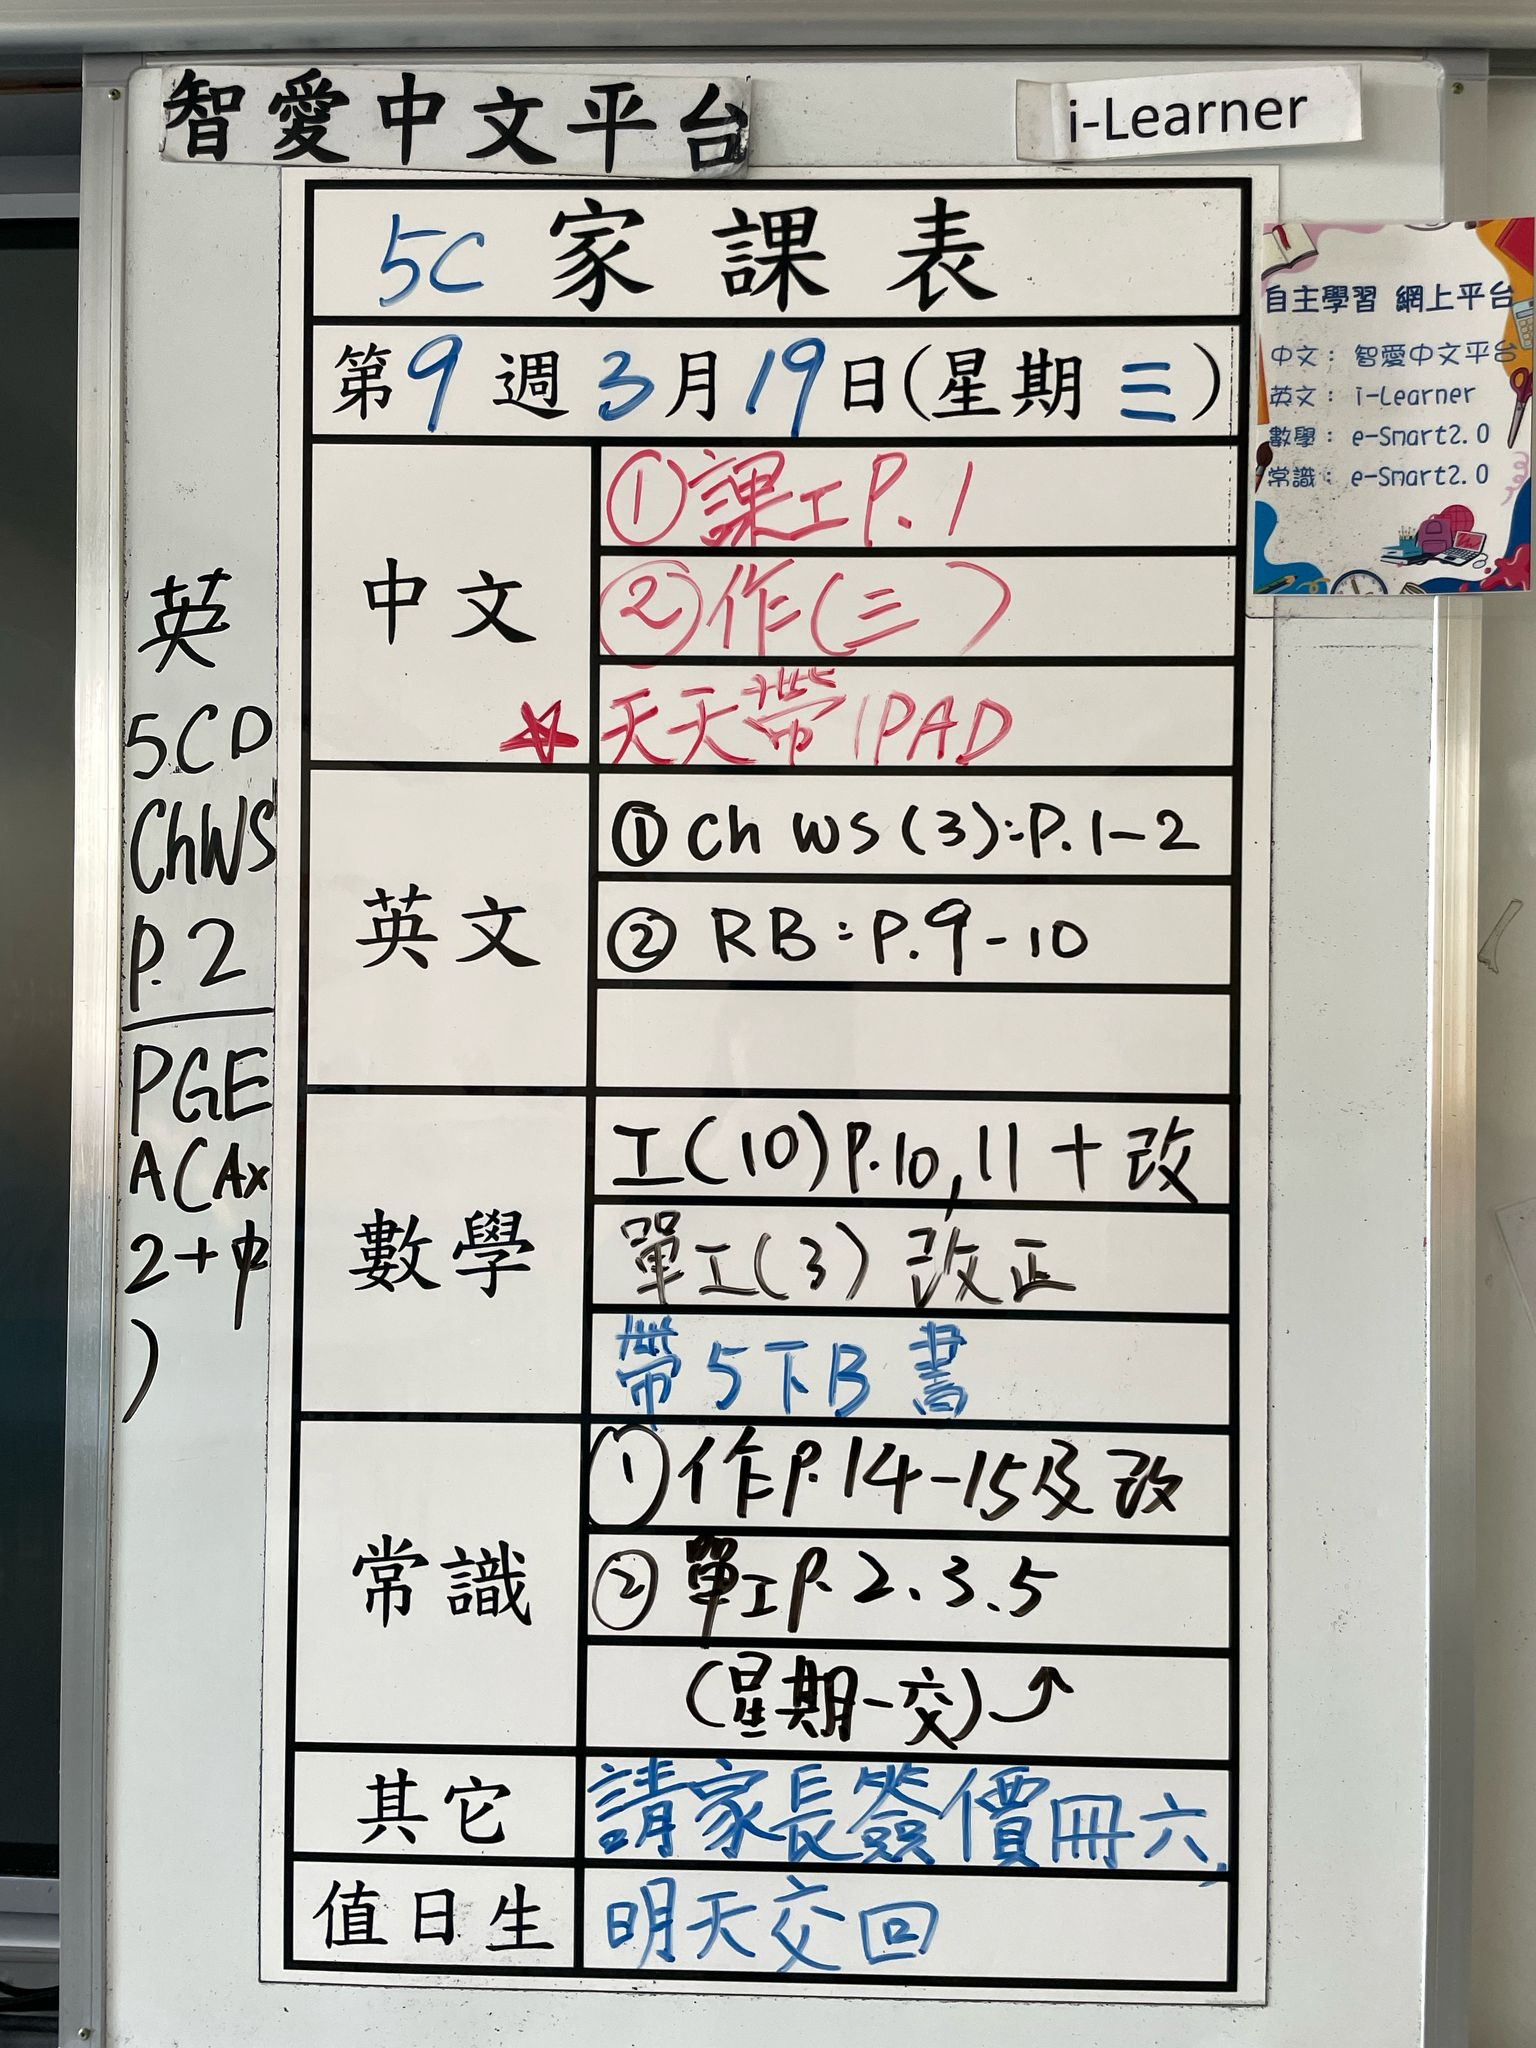 智愛中文平台
i-Learner
5C 家課表
第9週3月19日(星期三)
中文
①課工P.1
②作(三)
☆天天帶IPAD
英文
①Ch WS(3):P.1-2
②RB:P.9-10
數學
工(10)P.10,11+改
單工(3)改正
帶5下B書
常識
①作P.14-15及改
②單工P.2.3.5
(星期一交)↗
其它
請家長簽價冊六,
值日生
明天交回
英
5CD
ChWS
P.2
PGE
A(Ax
2+中
)
自主學習 網上平台
中文: 智愛中文平台
英文: i-Learner
數學: e-Smart2.0
常識: e-Smart2.0